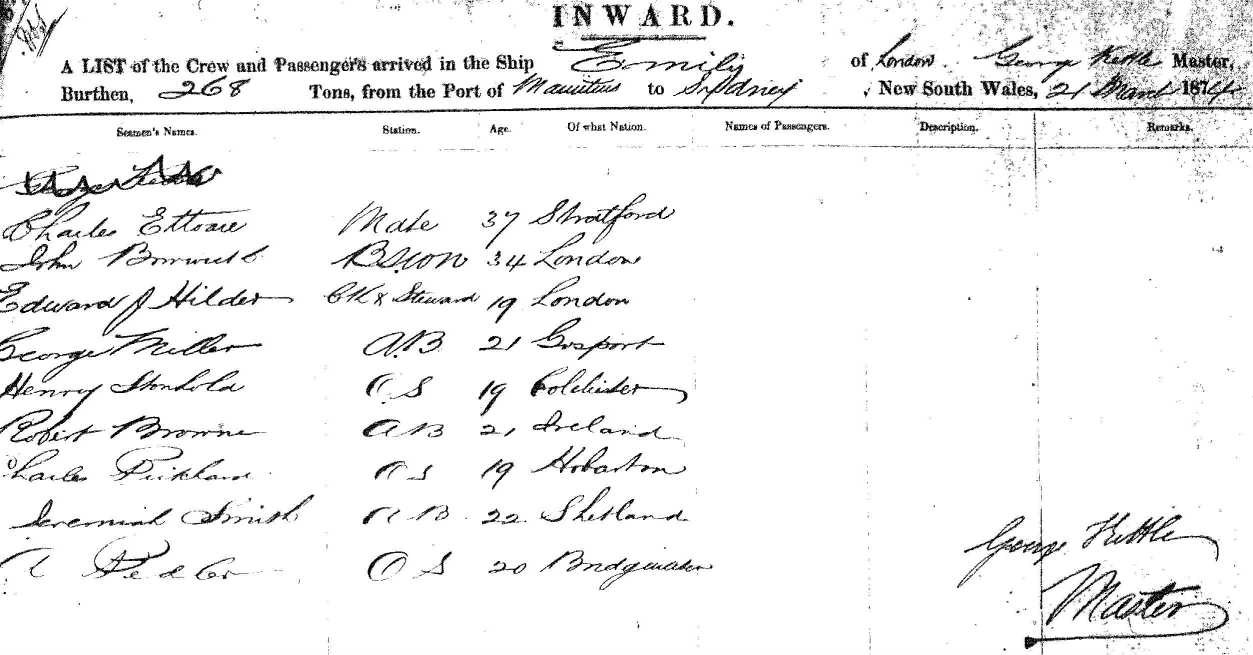 INWARD.
A LIST of the Crew and Passengers arrived in the Ship Emily of London George Kettle Master,
Burthen, 268 Tons, from the Port of Mauritius to Sydney, New South Wales, 21 March 1874
Seamen's Names. Station. Age. Of what Nation. Names of Passengers. Description. Remarks.
Charles Mate 37 Stratford
John BSWN 34 London
Edward J Hilder CK & Steward 19 London
George Miller A.B 21 Gosport
Henry O S 19 Colchester
Robert Browne A B 21 Ireland
Charles O S 19 Hobarton
Jeremiah Smith A B 22 Shetland
O S 20 Bridgwater
George Kettle
Master